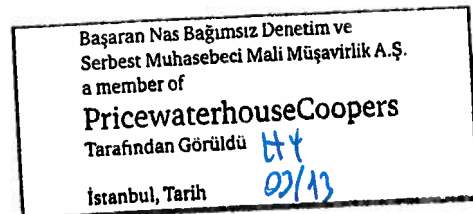 Başaran Nas Bağımsız Denetim ve
Serbest Muhasebeci Mali Müşavirlik A.Ş.
a member of
PricewaterhouseCoopers
Tarafından Görüldü HY
İstanbul, Tarih 03/13